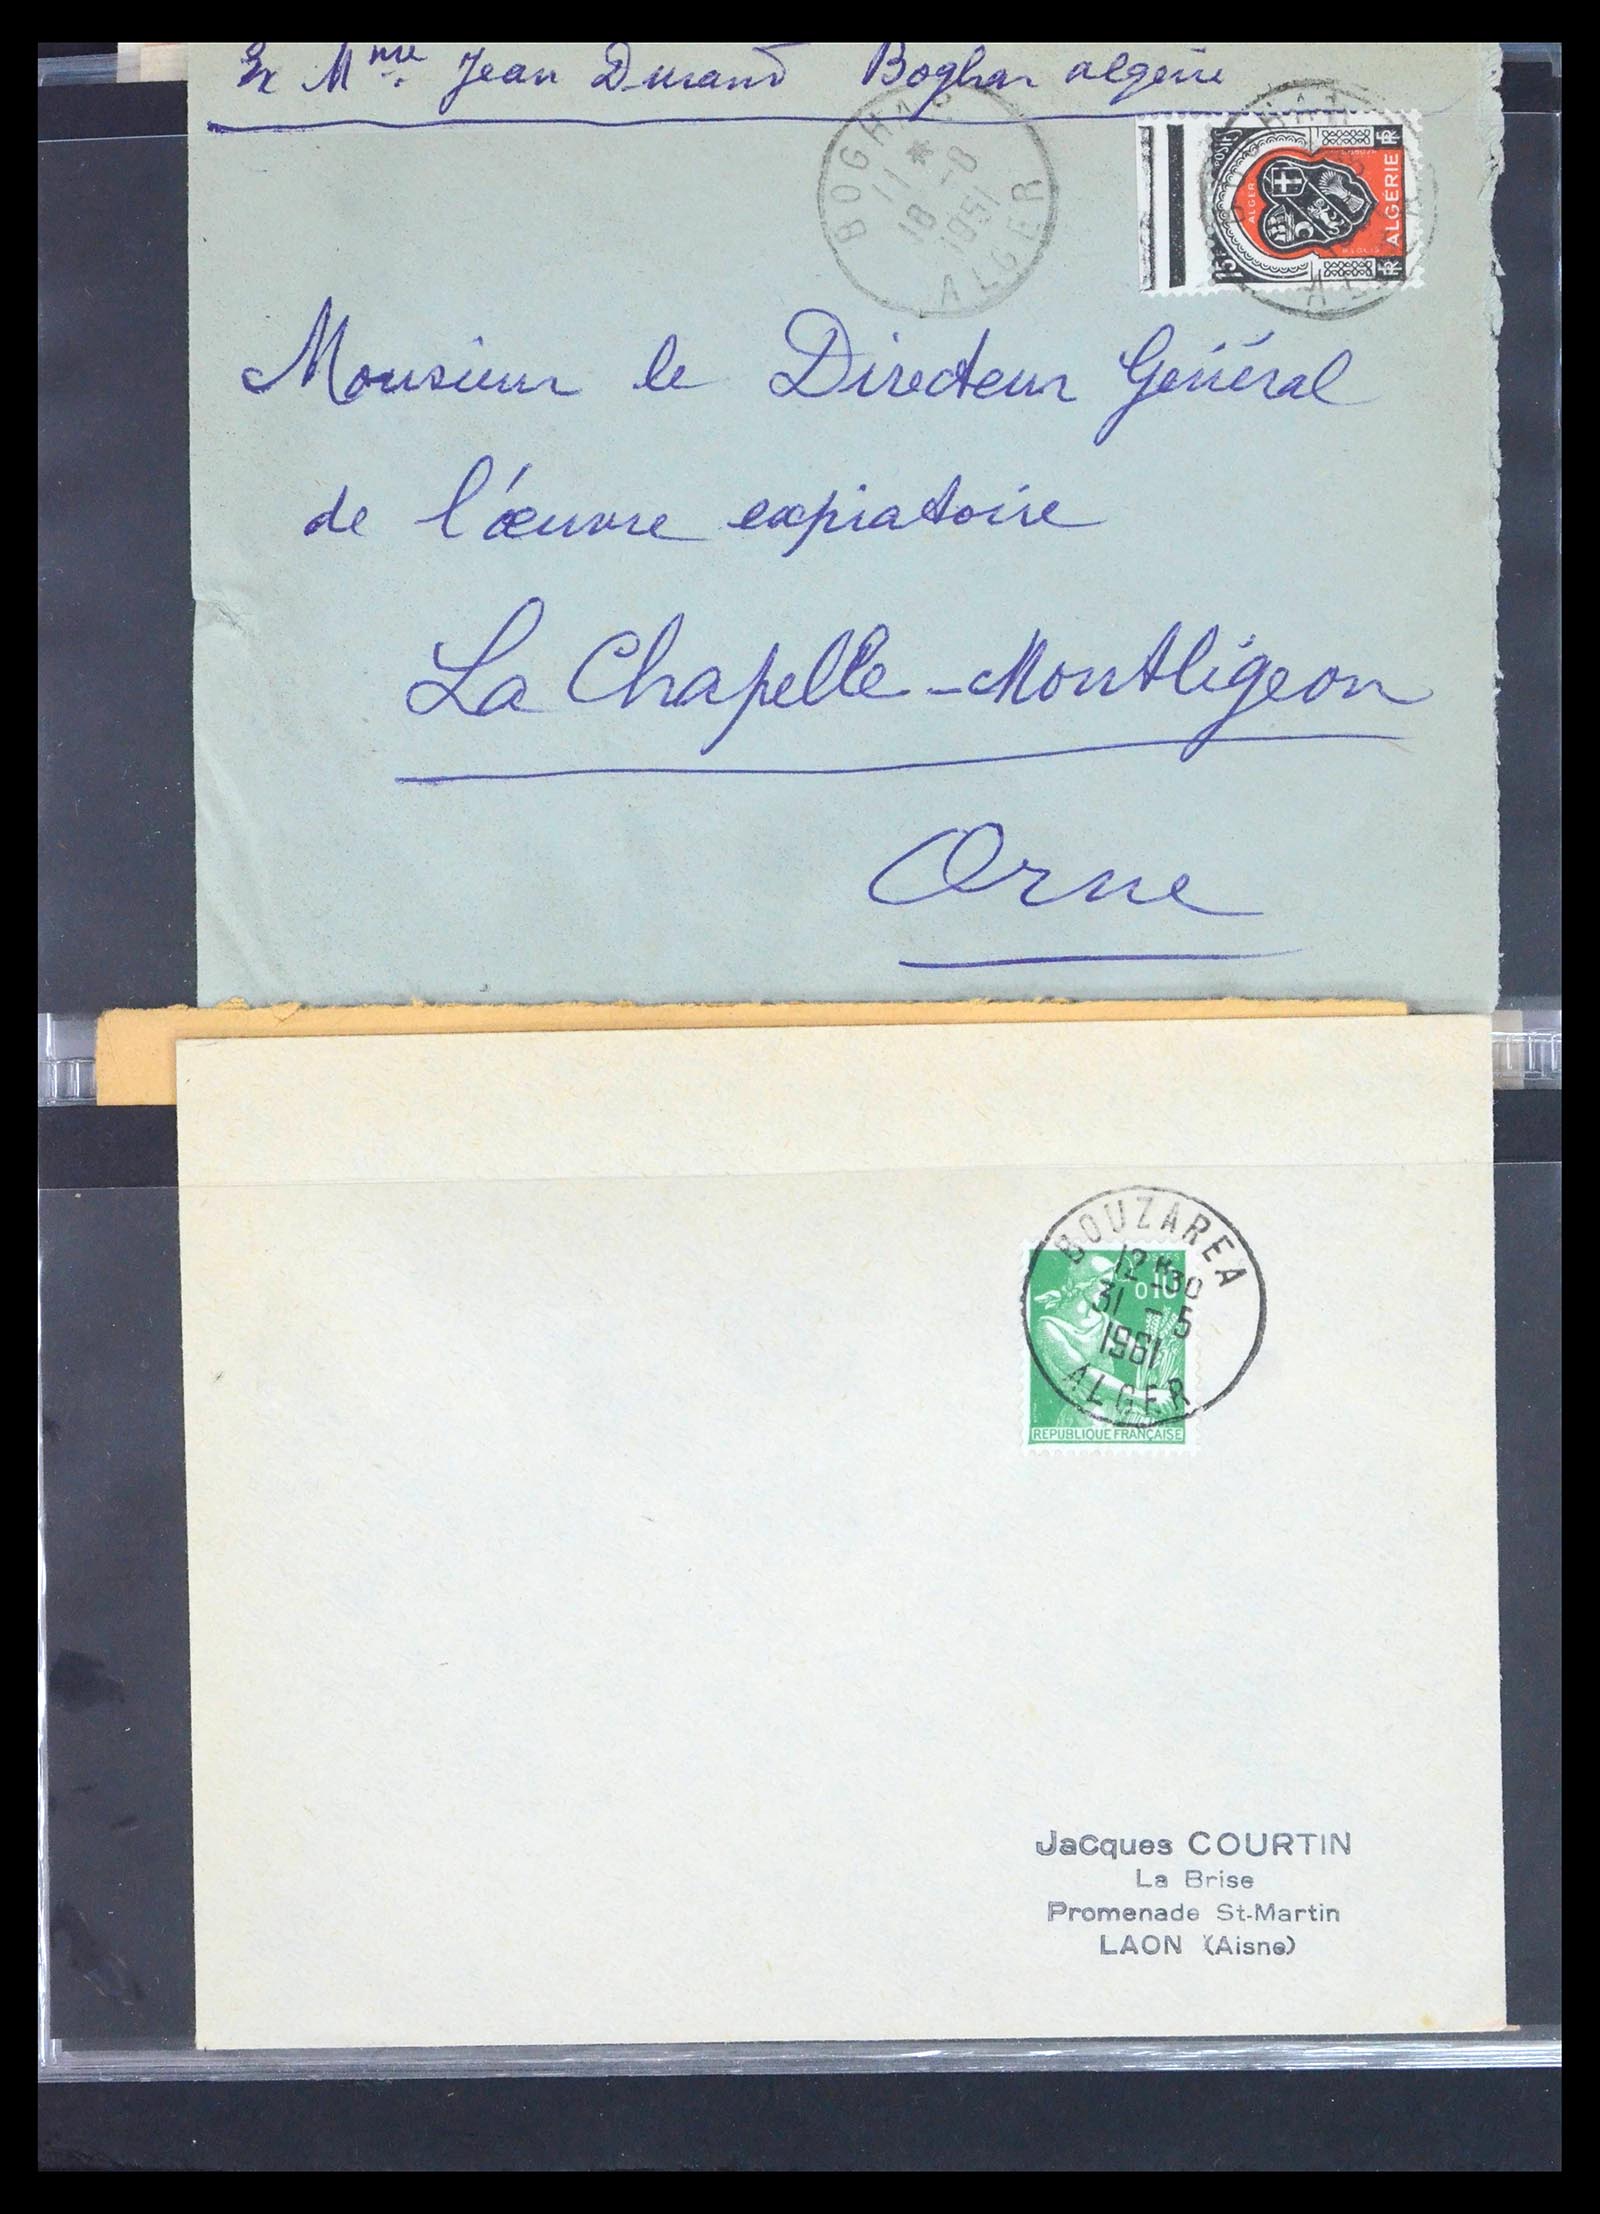 Mme Jean Durand Boghar algérie
BOGHAR
11 * 
18 -8
1951
ALGER
ALGER
15F
RF ALGÉRIE RF
Monsieur le Directeur Général
de l'œuvre expiatoire
La Chapelle-Montligeon
Orne
BOUZAREA
12H30
31 -5
1961
ALGER
POSTES
0,10
REPUBLIQUE FRANÇAISE
Jacques COURTIN
La Brise
Promenade St-Martin
LAON (Aisne)